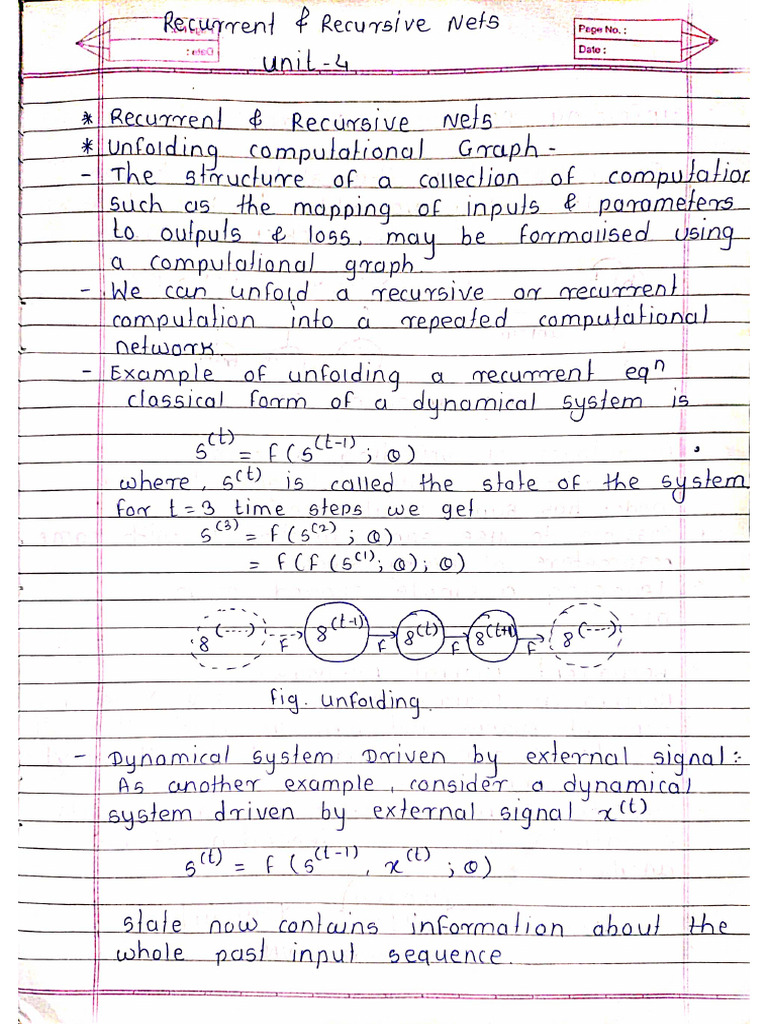 Recurrent & Recursive Nets
Page No. :
Date :
Unit-4
* Recurrent & Recursive Nets
* Unfolding computational Graph -
- The structure of a collection of computation
such as the mapping of inputs & parameters
to outputs & loss, may be formalised using
a computational graph.
- We can unfold a recursive or recurrent
computation into a repeated computational
network.
- Example of unfolding a recurrent eqⁿ
classical form of a dynamical system is
s^(t) = f(s^(t-1) ; θ)
where, s^(t) is called the state of the system
for t=3 time steps we get
s^(3) = f(s^(2) ; θ)
= f(f(s^(1); θ); θ)
s^(....) F s^(t-1) F s^(t) F s^(t+1) F s^(....)
fig. unfolding.
- Dynamical system Driven by external signal:-
As another example, consider a dynamical
system driven by external signal x^(t)
s^(t) = f(s^(t-1), x^(t) ; θ)
state now contains information about the
whole past input sequence.